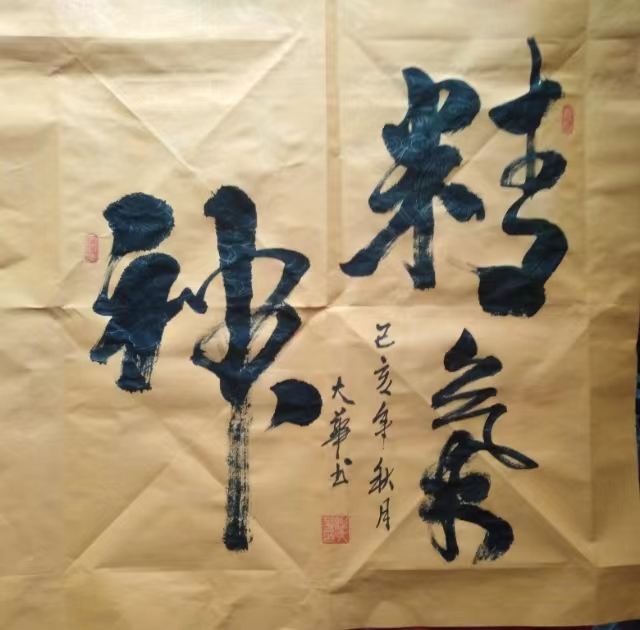 精氣神
己亥年秋月
大華书